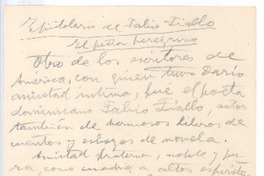 Epistolario de Fabio Fiallo
El poeta peregrino
Otro de los escritores de
América, con quien tuvo Darío
amistad íntima, fué el poeta
dominicano Fabio Fiallo, autor
también de hermosos libros de
cuentos y esbozos de novela.
Amistad fraterna, noble y pu-
ra como cuadra a altos espíritu